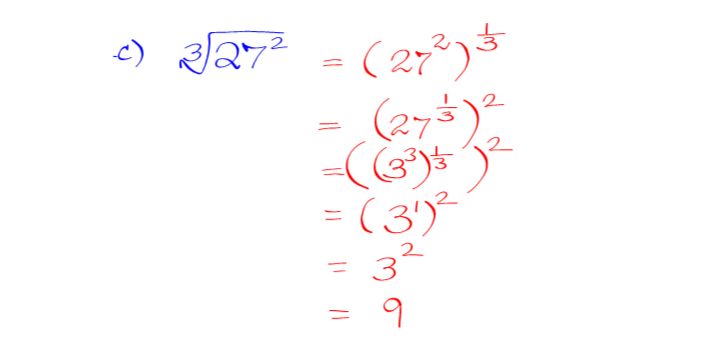 c) ∛27² = (27²)^(1/3)
= (27^(1/3))²
= ((3³)^(1/3))²
= (3¹)²
= 3²
= 9